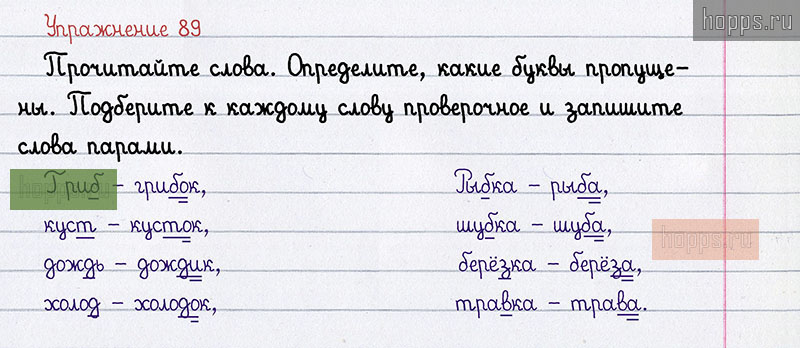 hopps.ru
Упражнение 89
Прочитайте слова. Определите, какие буквы пропуще-
ны. Подберите к каждому слову проверочное и запишите
слова парами.
Гриб – грибок,
куст – кусток,
дождь – дождик,
холод – холодок,
Рыбка – рыба,
шубка – шуба,
берёзка – берёза,
травка – трава.
hopps.ru
hopps.ru